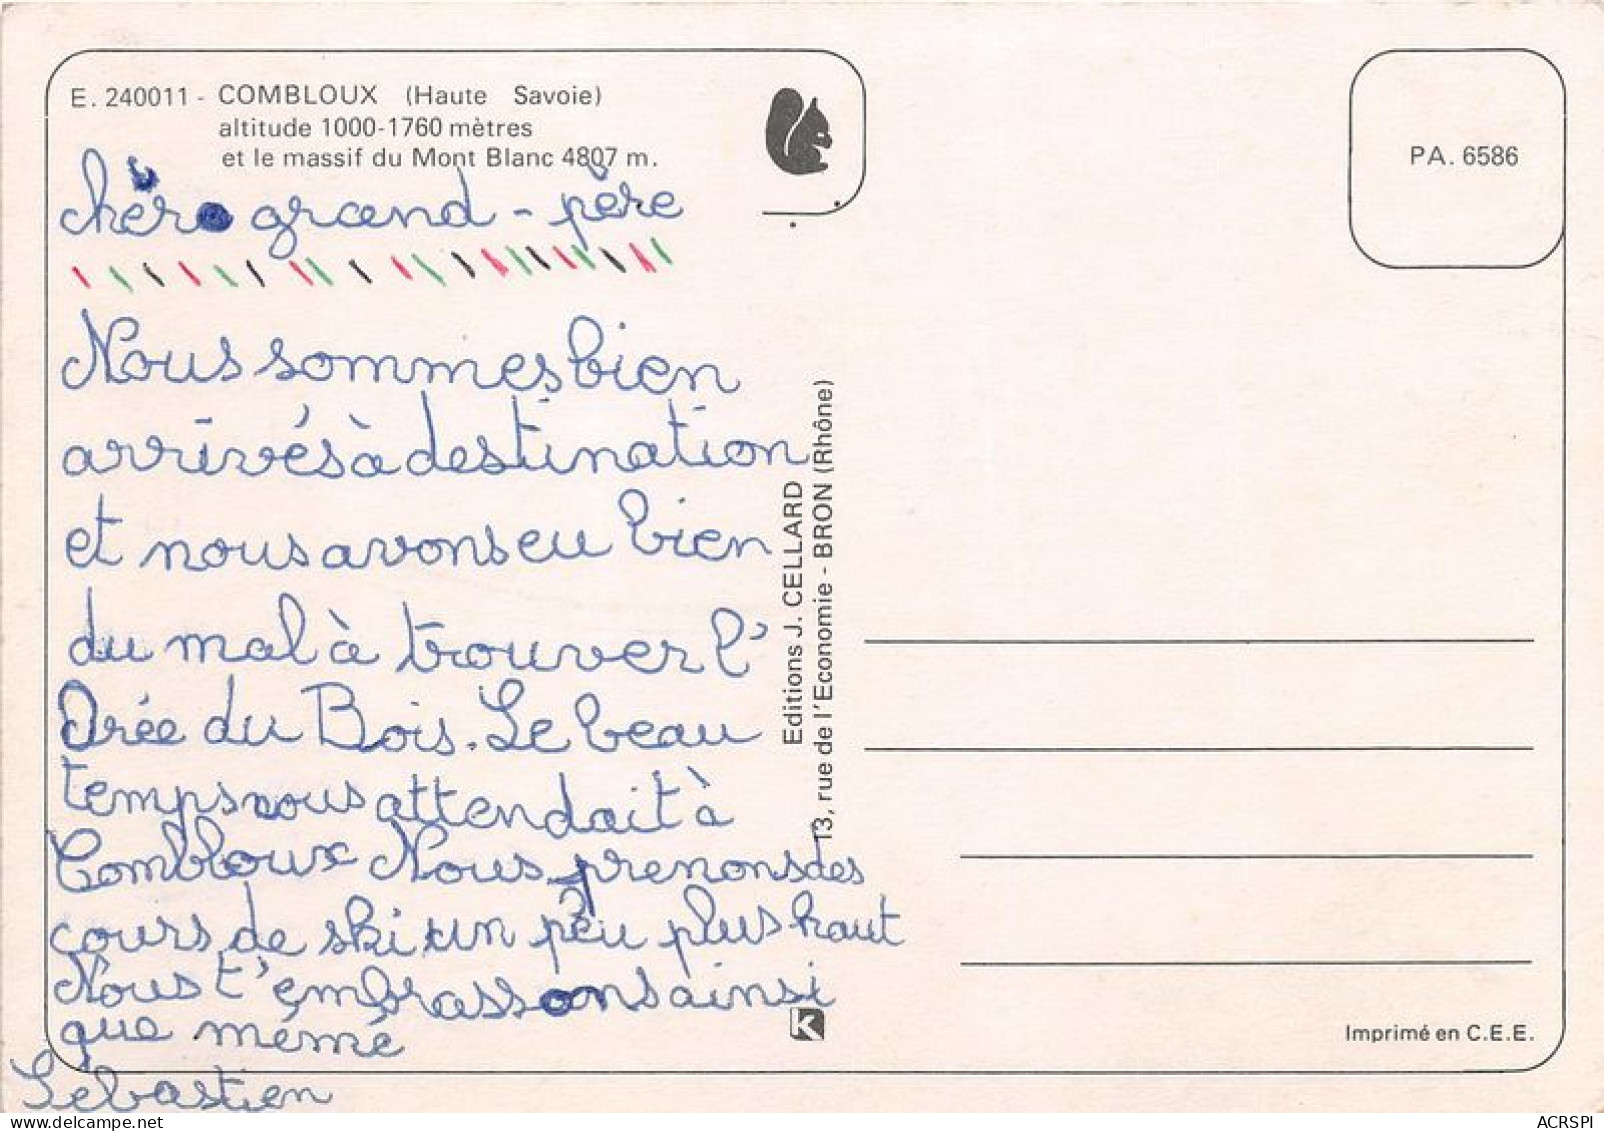 E. 240011 - COMBLOUX (Haute Savoie)
altitude 1000-1760 mètres
et le massif du Mont Blanc 4807 m.
PA. 6586
chèr grand-père
Nous sommes bien
arrivés à destination
et nous avons eu bien
du mal à trouver l'
Orée du Bois. Le beau
temps nous attendait à
Combloux Nous prenons des
cours de ski un peu plus haut
Nous t'embrassons ainsi
que mémé
Sébastien
Editions J. CELLARD
13, rue de l'Economie - BRON (Rhône)
K
Imprimé en C.E.E.
ACRSPI